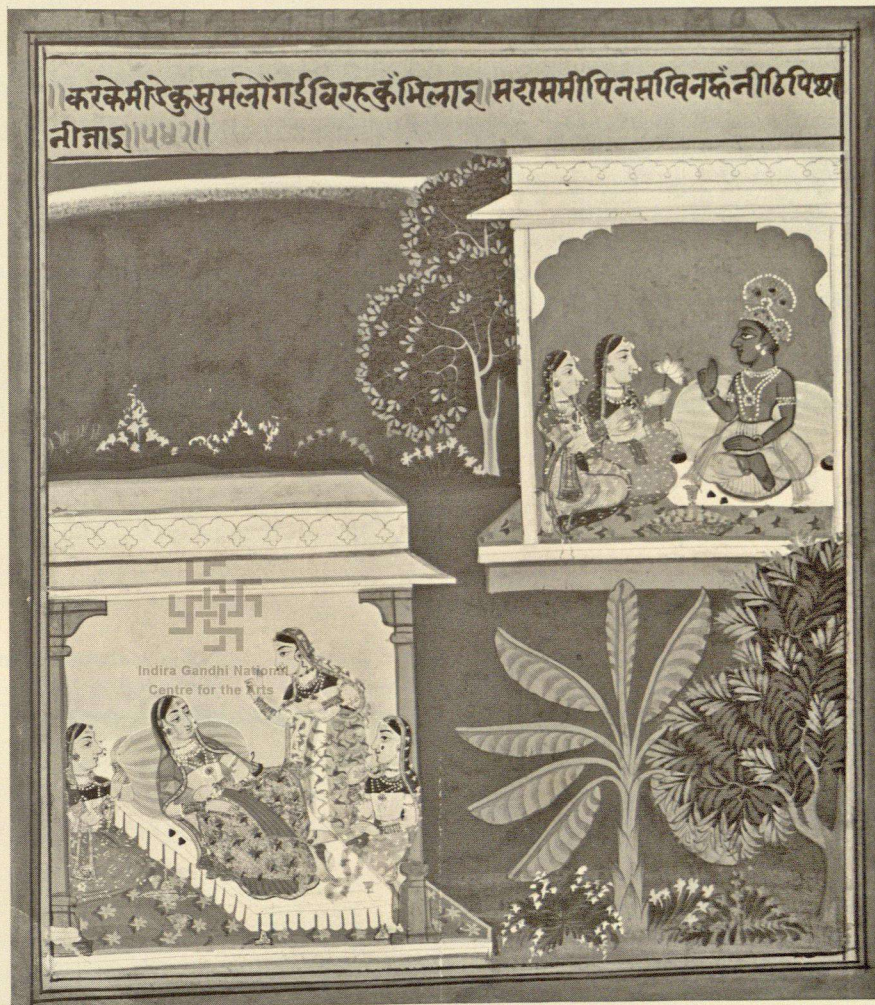 ॥करकेमीडेकुसुमलोंगईबिरहकुंमिलाइ॥सदासमीपिनसखिनहूंनीठिपिछा
नीजाइ॥५४२॥
Indira Gandhi National
Centre for the Arts